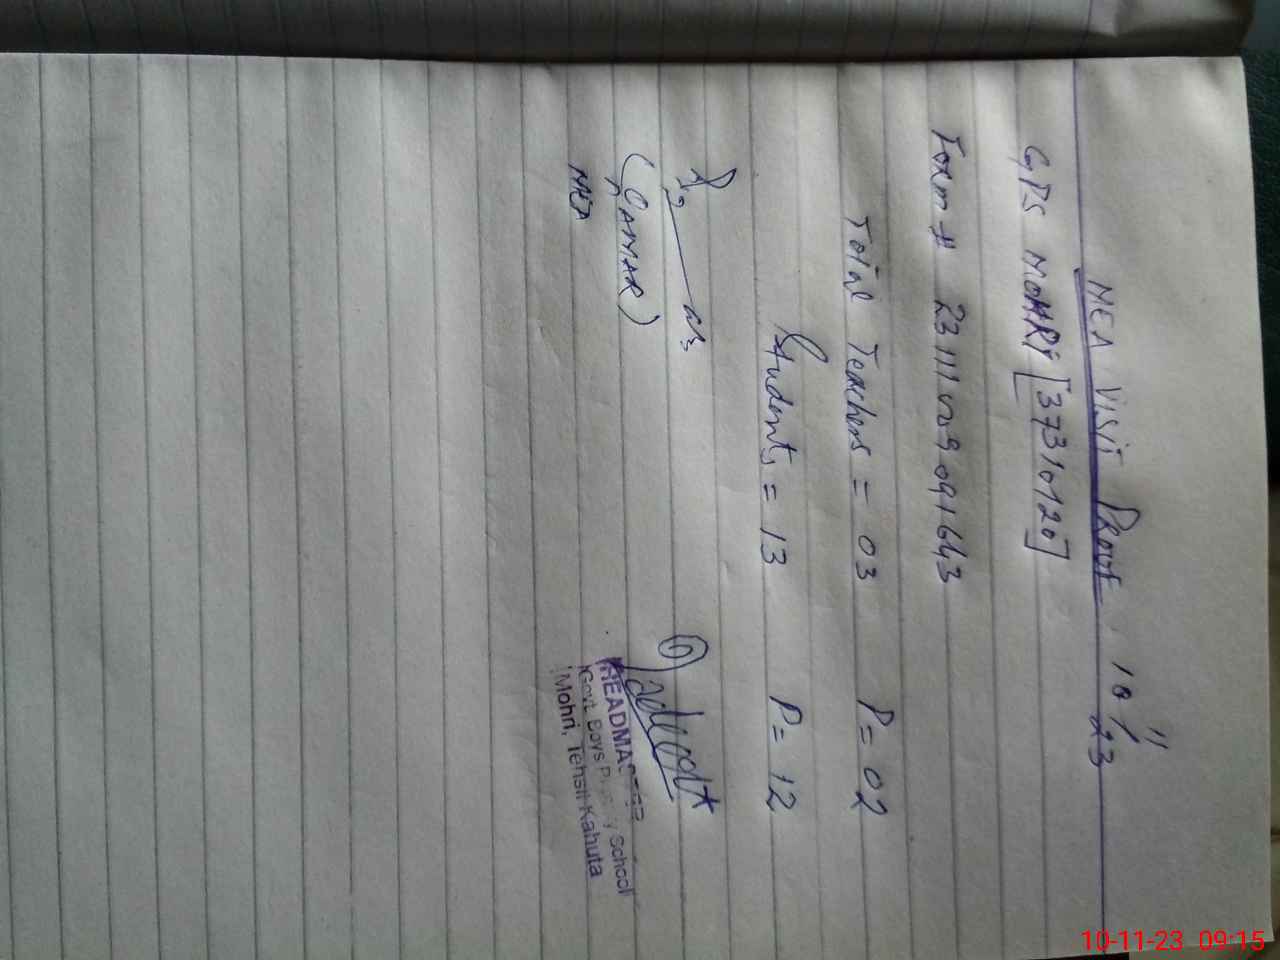 MEA VISIT PROOF. 10/11/23
GPS MOHRI [37310120]
Form # 
Total Teachers = 03 P = 02
Students = 13 P = 12
(QAMAR)
MEA
HEADMASTER
Govt. Boys Primary School
Mohri, Tehsil Kahuta
10-11-23 09:15